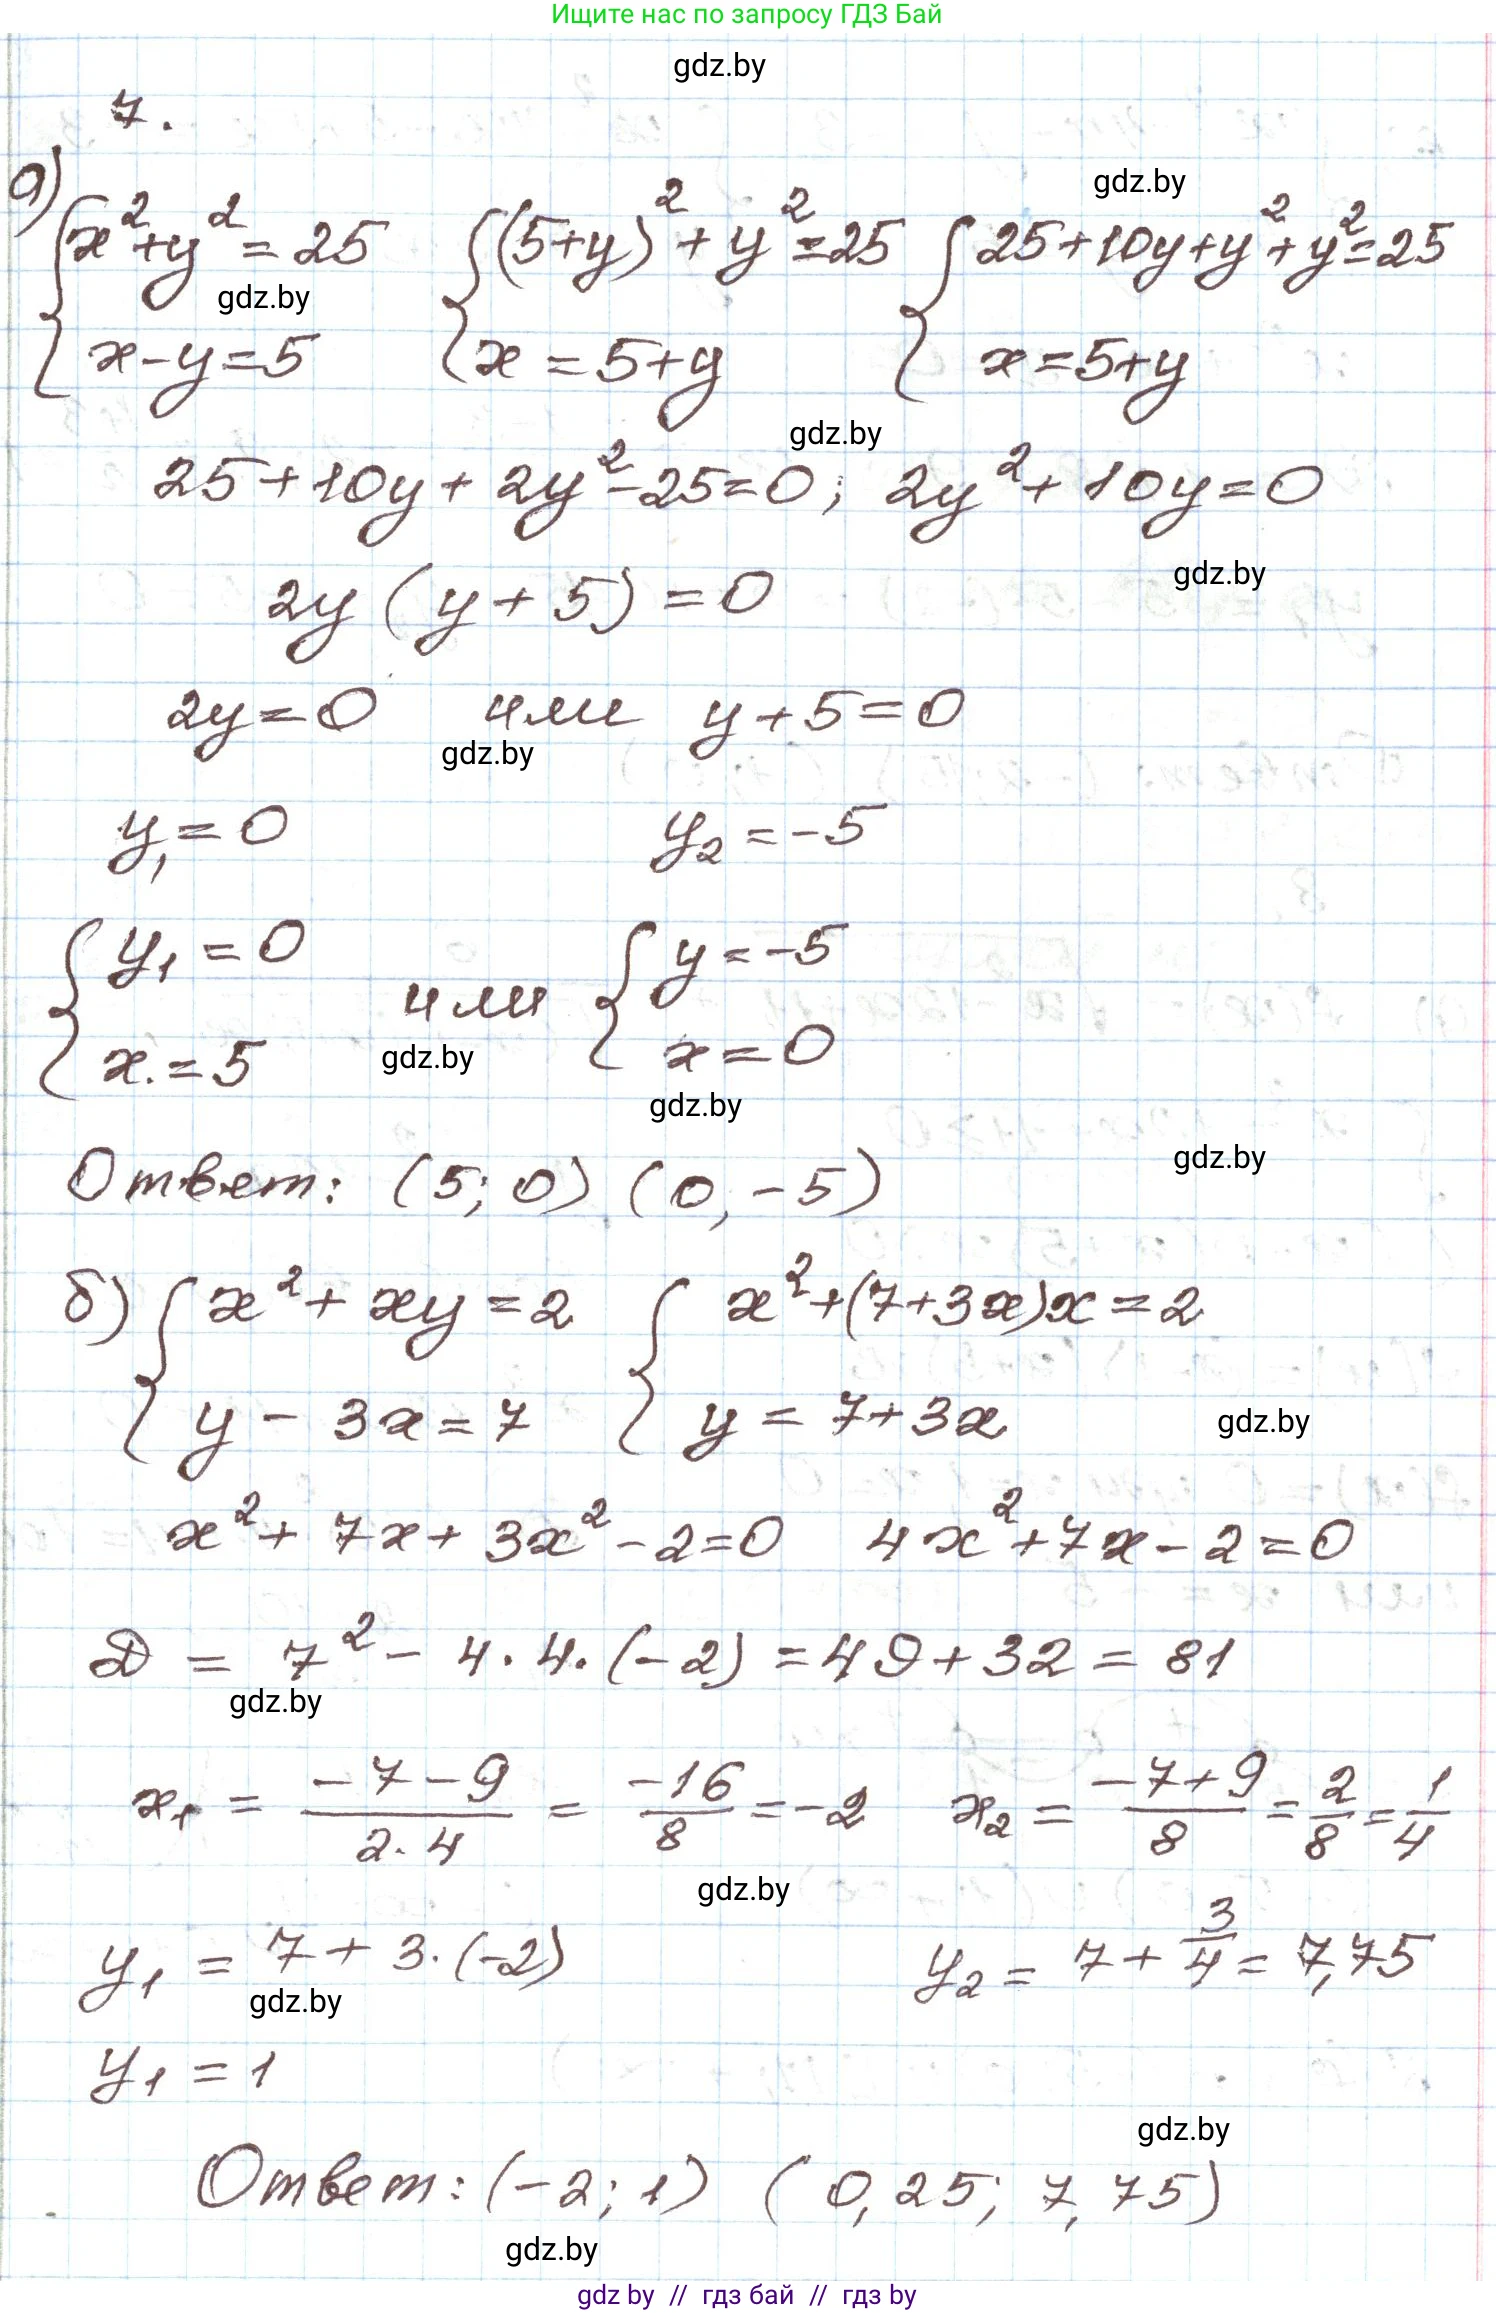 Ищите нас по запросу ГДЗ Бай
gdz.by
7.
gdz.by
а) { x² + y² = 25 { (5+y)² + y² = 25 { 25+10y+y²+y²=25
gdz.by
x - y = 5 x = 5+y x = 5+y
gdz.by
25 + 10y + 2y² - 25 = 0; 2y² + 10y = 0
gdz.by
2y (y + 5) = 0
2y = 0 или y + 5 = 0
gdz.by
y₁ = 0 y₂ = -5
{ y₁ = 0 или { y = -5
x. = 5 x = 0
gdz.by
gdz.by
gdz.by
Ответ: (5; 0) (0, -5)
б) { x² + xy = 2 { x² + (7+3x)x = 2
y - 3x = 7 y = 7+3x
gdz.by
x² + 7x + 3x² - 2 = 0 4x² + 7x - 2 = 0
D = 7² - 4 · 4 · (-2) = 49 + 32 = 81
gdz.by
x₁ = (-7-9)/(2·4) = -16/8 = -2 x₂ = (-7+9)/8 = 2/8 = 1/4
gdz.by
y₁ = 7 + 3 · (-2) y₂ = 7 + 3/4 = 7,75
gdz.by
y₁ = 1
gdz.by
Ответ: (-2; 1) (0,25; 7,75)
gdz.by
gdz by // гдз бай // гдз by